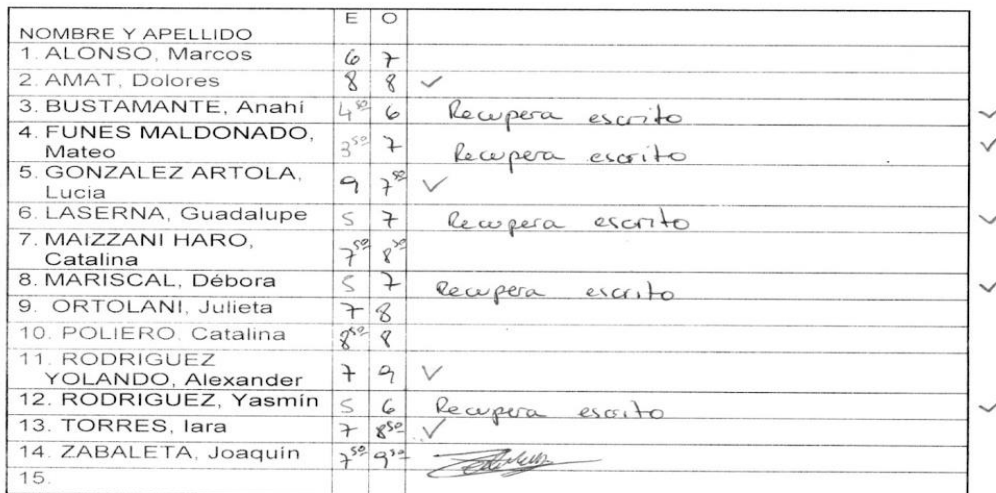 E O
NOMBRE Y APELLIDO
1. ALONSO, Marcos 6 7
2. AMAT, Dolores 8 8 ✓
3. BUSTAMANTE, Anahí 4⁵⁰ 6 Recupera escrito ✓
4. FUNES MALDONADO,
Mateo 3⁵⁰ 7 Recupera escrito ✓
5. GONZALEZ ARTOLA,
Lucia 9 7⁵⁰ ✓
6. LASERNA, Guadalupe 5 7 Recupera escrito ✓
7. MAIZZANI HARO,
Catalina 7⁵⁰ 8⁵⁰
8. MARISCAL, Débora 5 7 Recupera escrito ✓
9. ORTOLANI, Julieta 7 8
10. POLIERO, Catalina 8⁵⁰ 8
11. RODRIGUEZ
YOLANDO, Alexander 7 9 ✓
12. RODRIGUEZ, Yasmín 5 6 Recupera escrito ✓
13. TORRES, Iara 7 8⁵⁰ ✓
14. ZABALETA, Joaquín 7⁵⁰ 9⁵⁰
15.